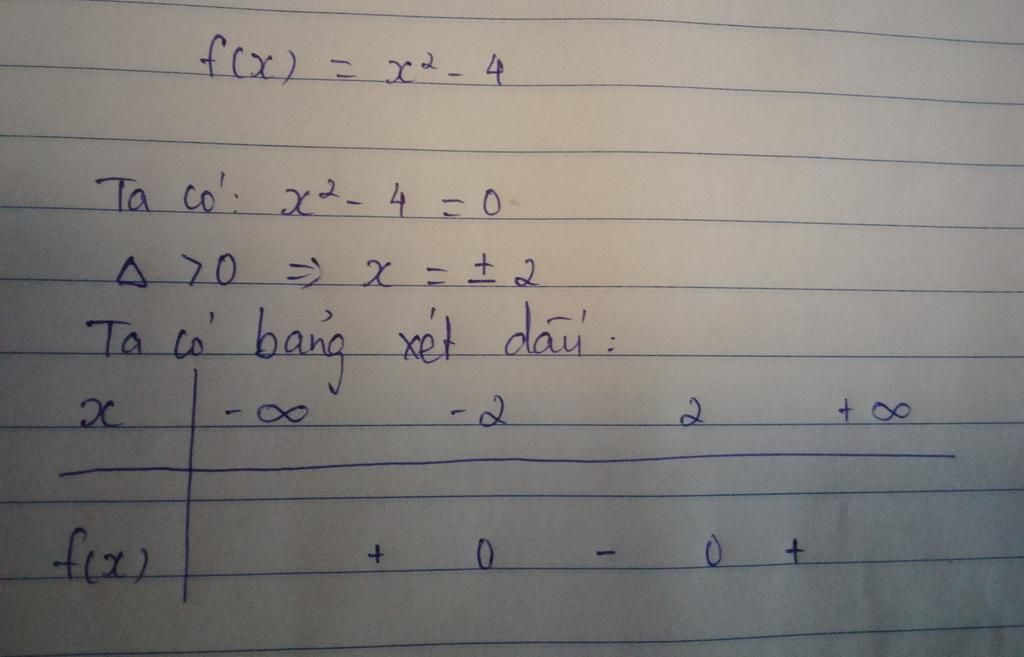 f(x) = x² - 4
Ta có: x² - 4 = 0
Δ > 0 ⇒ x = ± 2
Ta có bảng xét dấu:
x -∞ -2 2 +∞
f(x) + 0 - 0 +